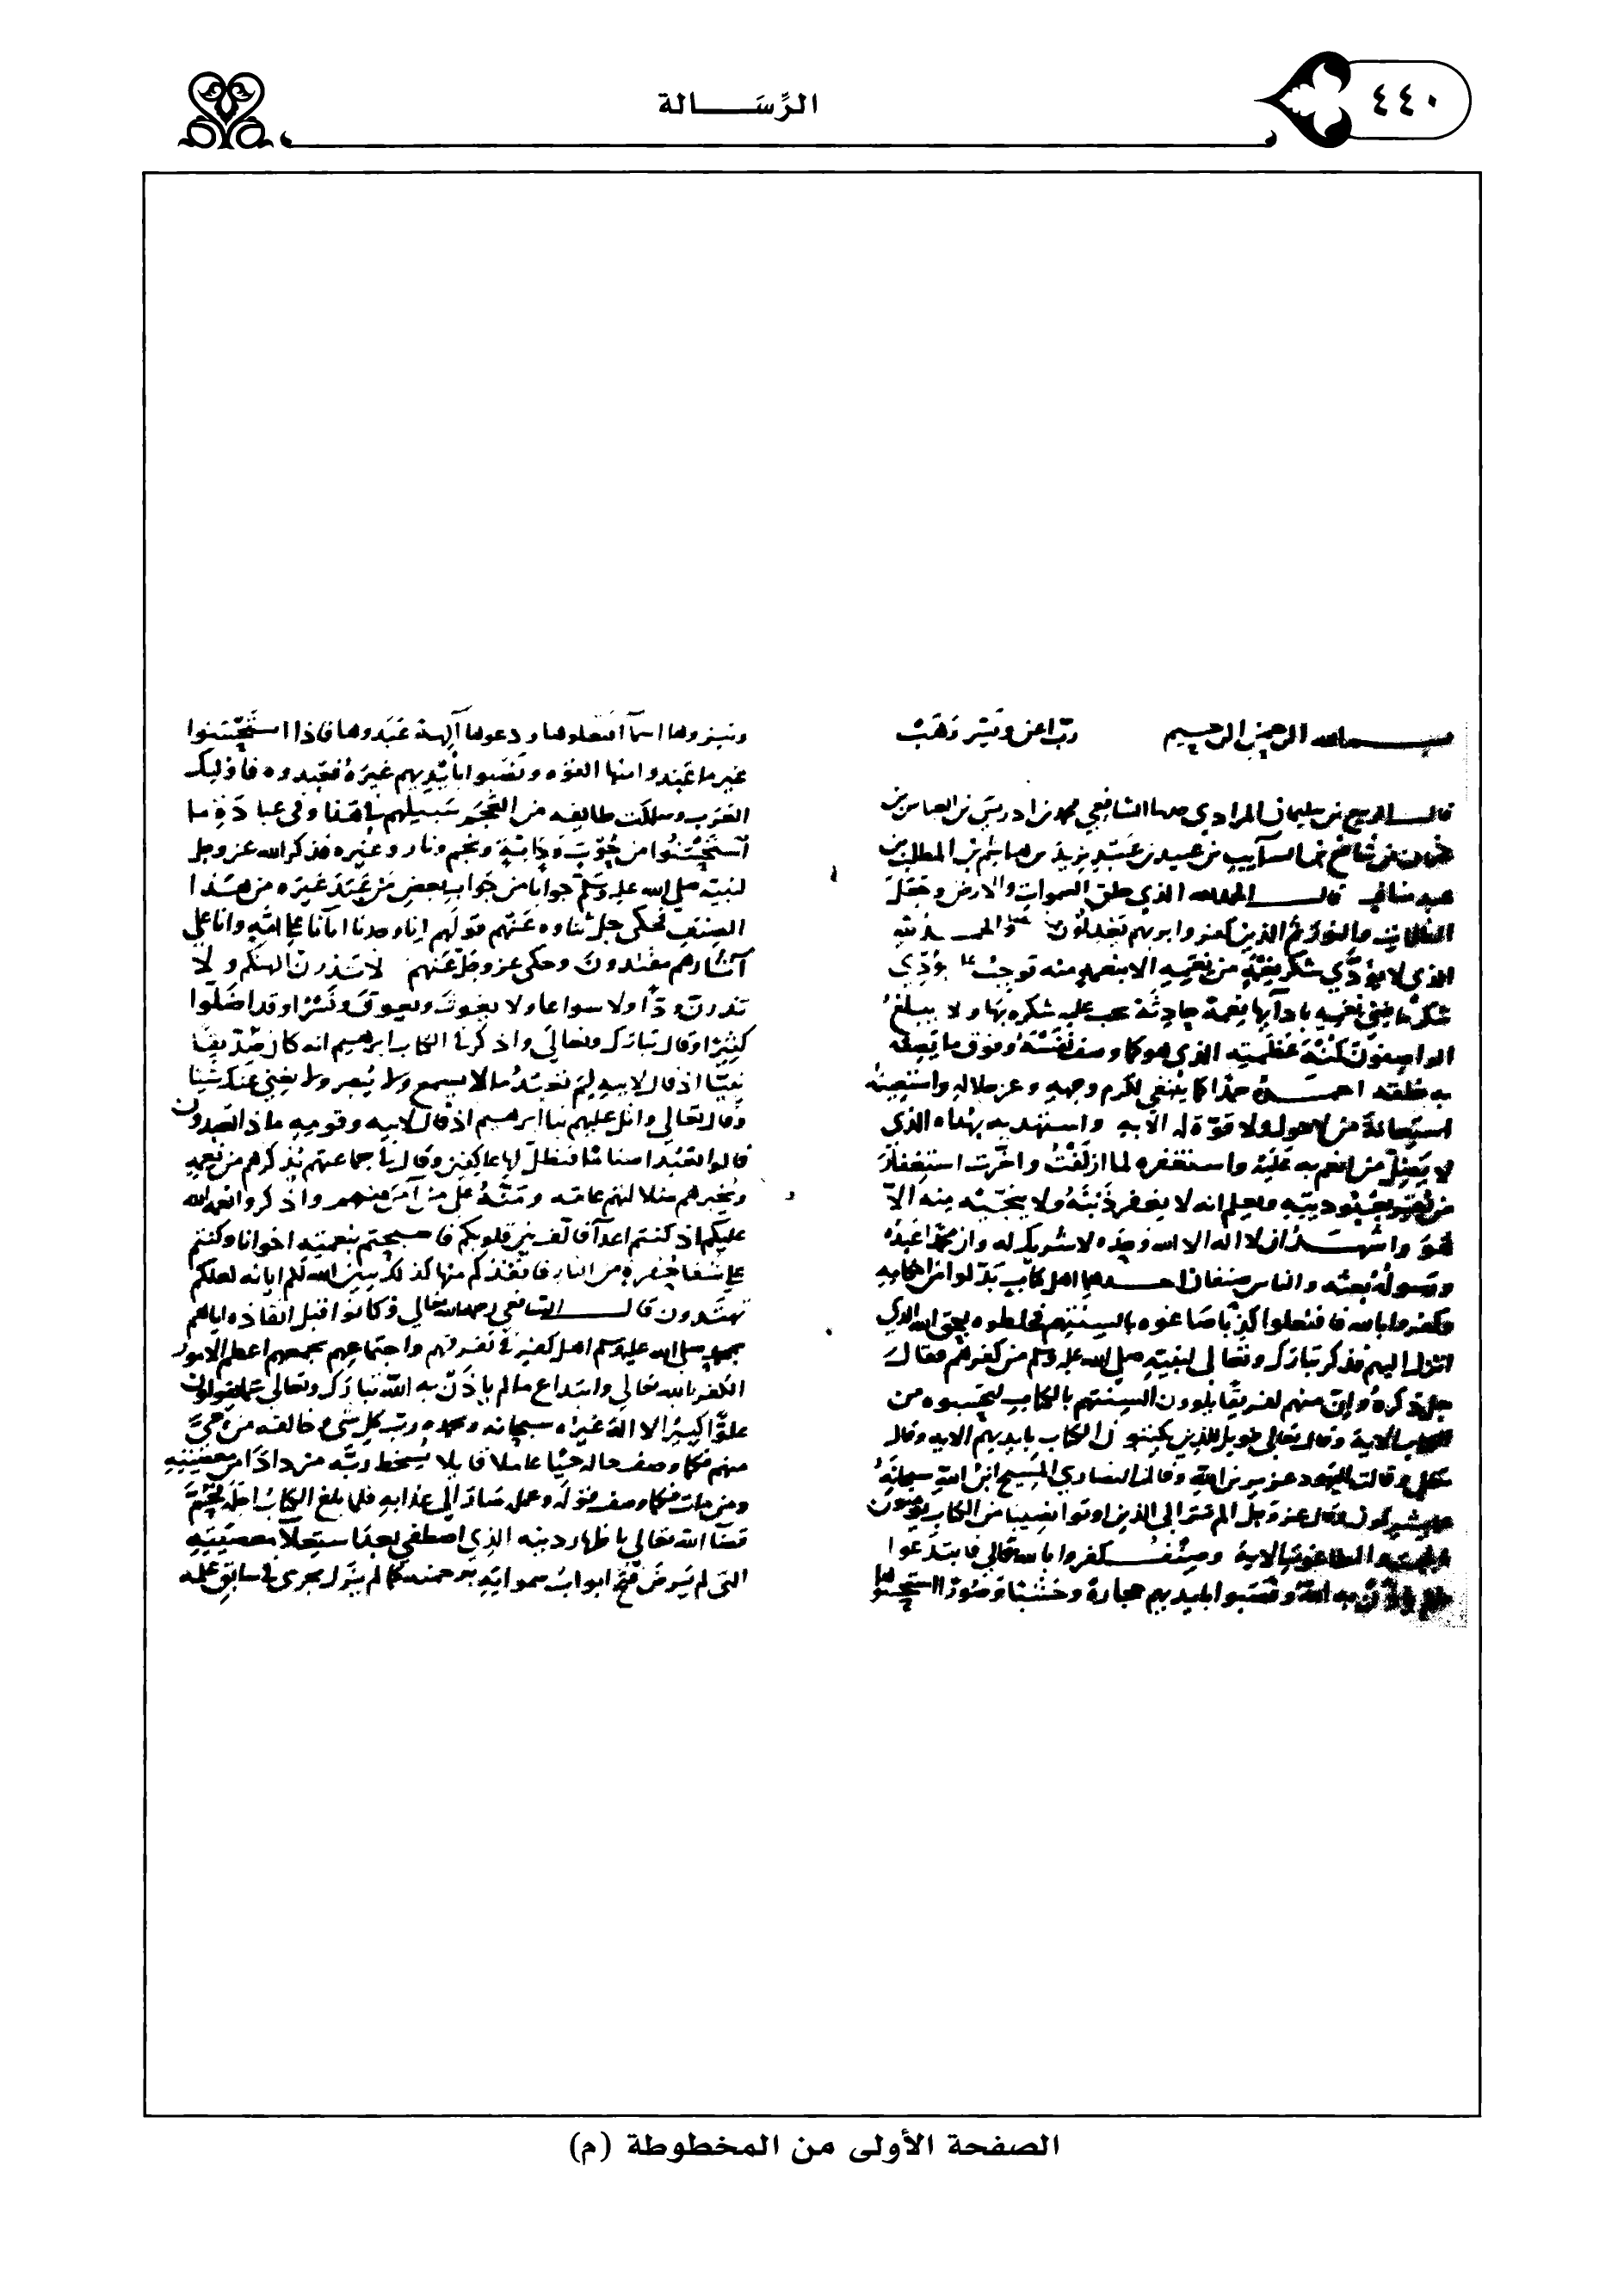 ٤٤٠
الرِّسَــــالة
بســـــم الله الرحمن الرحيم رب اعن ويسر وهب
قال الربيع بن سليمان المرادي الشافعي محمد بن ادريس بن العباس بن
بن شافع بن السايب بن عبيد بن عبد يزيد بن هاشم بن المطلب بن
عبد مناف قال الحمد لله الذي خلق السموات والارض وجعل
الظلمات والنور ثم الذين كفروا بربهم يعدلون والحمد لله
الذي لا يؤدي شكر نعمة من نعمه الا بنعمة منه توجب على مؤدي
شكر ماضي نعمه بادآيها نعمة حادثة يجب عليه شكره بها ولا يبلغ
الواصفون كنه عظمته الذي هو كما وصف نفسه وفوق ما يصفه
به خلقه احمده حمدا كما ينبغي لكرم وجهه وعز جلاله واستعينه
استعانة من لا حول ولا قوة له الا به واستهديه بهداه الذي
لا يضل من انعم به عليه واستغفره لما ازلفت واخرت استغفار
من يقر بعبوديته ويعلم انه لا يغفر ذنبه ولا ينجيه منه الا
هو واشهد ان لا اله الا الله وحده لا شريك له وان محمدا عبده
ورسوله بعثه والناس صنفان احدهما اهل كتاب بدلوا من احكامه
وكفروا بالله فافتعلوا كذبا صاغوه بالسنتهم فخلطوه بحق الله الذي
انزل اليهم فذكر تبارك وتعالى لنبيه صلى الله عليه وسلم من كفرهم فقال
جل ذكره وان منهم لفريقا يلوون السنتهم بالكتاب لتحسبوه من
الكتاب الاية وقال تعالى فويل للذين يكتبون الكتاب بايديهم الايه وقال
تعالى وقالت اليهود عزير بن الله وقالت النصارى المسيح ابن الله سبحانه
عما يشركون وقال عز وجل الم تر الى الذين اوتوا نصيبا من الكتاب يؤمنون
بالجبت والطاغوت الاية وصنف كفروا بالله تعالى فابتدعوا
ما لم ياذن به الله ونصبوا بايديهم حجارة وخشبا وصورا استحسنوها
ونبزوها اسما افتعلوها ودعوها آلهة عبدوها فاذا استحسنوا
غير ما عبدوا منها القوه ونصبوا بايديهم غيره فعبدوه فاوليك
العرب وسلكت طايفه من العجم سبيلهم في هذا وفي عبادة ما
استحسنوا من حوت ودابة ونجم ونار وغيره فذكر الله عز وجل
لنبيه صلى الله عليه وسلم جوابا من جواب بعض من عبد غيره من هذا
الصنف فحكى جل ثناوه عنهم قولهم انا وجدنا اباءنا على امة وانا على
آثارهم مقتدون وحكى عز وجل عنهم لا تذرن الهتكم ولا
تذرن ودا ولا سواعا ولا يغوث ويعوق ونسرا وقد اضلوا
كثيرا وقال تبارك وتعالى واذكر في الكتاب ابرهيم انه كان صديقا
نبيا اذ قال لابيه لم تعبد ما لا يسمع ولا يبصر ولا يغني عنك شيئا
وقال تعالى واتل عليهم نبا ابرهيم اذ قال لابيه وقومه ماذا تعبدون
قالوا نعبد اصناما فنظل لها عاكفين وقال في جماعتهم يذكرهم من نعمه
ويخبرهم ضلالتهم عامه ومنه على من آمن منهم واذكروا نعمة الله
عليكم اذ كنتم اعداء فالف بين قلوبكم فاصبحتم بنعمته اخوانا وكنتم
على شفا حفرة من النار فانقذكم منها كذلك يبين الله لكم اياته لعلكم
تهتدون قال الشافعي رحمه الله تعالى فكانوا قبل انقاذه اياهم
بمحمد صلى الله عليه وسلم اهل كفر في تفرقهم واجتماعهم يجمعهم اعظم الامور
الكفر بالله تعالى وابتداع ما لم ياذن به الله تبارك وتعالى عما يقولون
علوا كبيرا لا اله غيره سبحانه وبحمده رب كل شيء وخالقه من حي
منهم فكما وصف حاله حيا عاملا قايلا يسخط ربه مزدادا من معصيته
ومن مات فكما وصف قوله وعمله صار الى عذابه فلما بلغ الكتاب اجله فحق
قضاء الله تعالى باظهار دينه الذي اصطفى بعد استعلاء معصيته
التي لم يرض فتح ابواب سمواته برحمته كما لم يزل يجري في سابق علمه
الصفحة الأولى من المخطوطة (م)